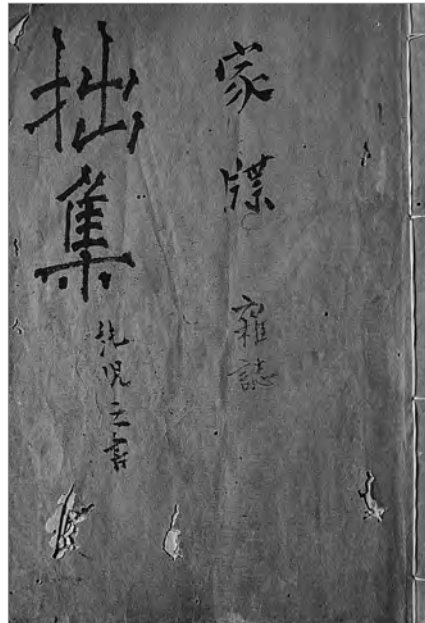 家牒 雜誌
拙集
兒之書